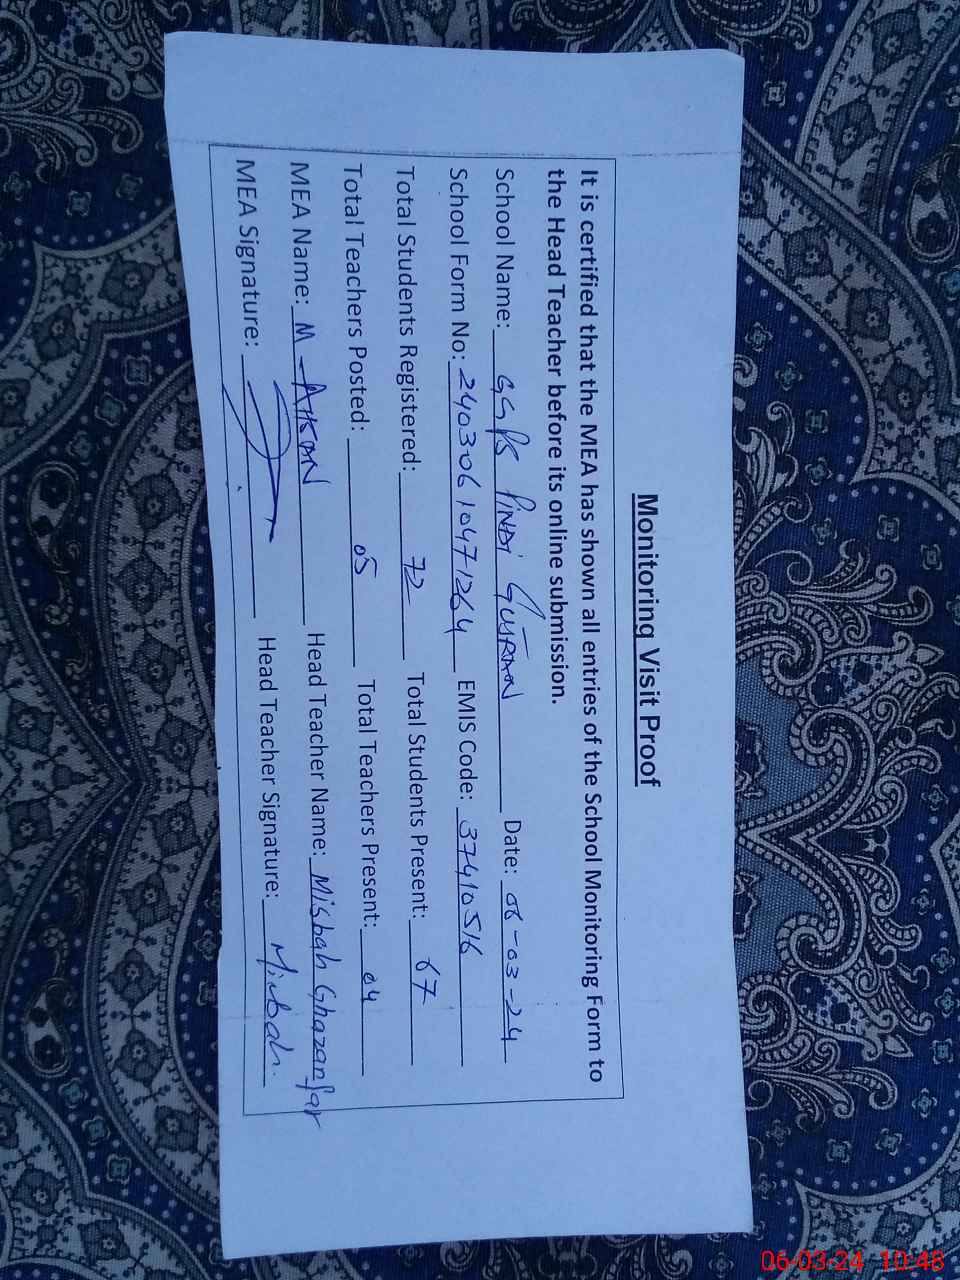 Monitoring Visit Proof
It is certified that the MEA has shown all entries of the School Monitoring Form to
the Head Teacher before its online submission.
School Name: GGPS PINDI GUJRAN Date: 06-03-24
School Form No: 24030610471264 EMIS Code: 37410516
Total Students Registered: 72 Total Students Present: 67
Total Teachers Posted: 05 Total Teachers Present: 04
MEA Name: M-AHSAN Head Teacher Name: Misbah Ghazanfar
MEA Signature: Head Teacher Signature: Misbah.
06-03-24 10:48